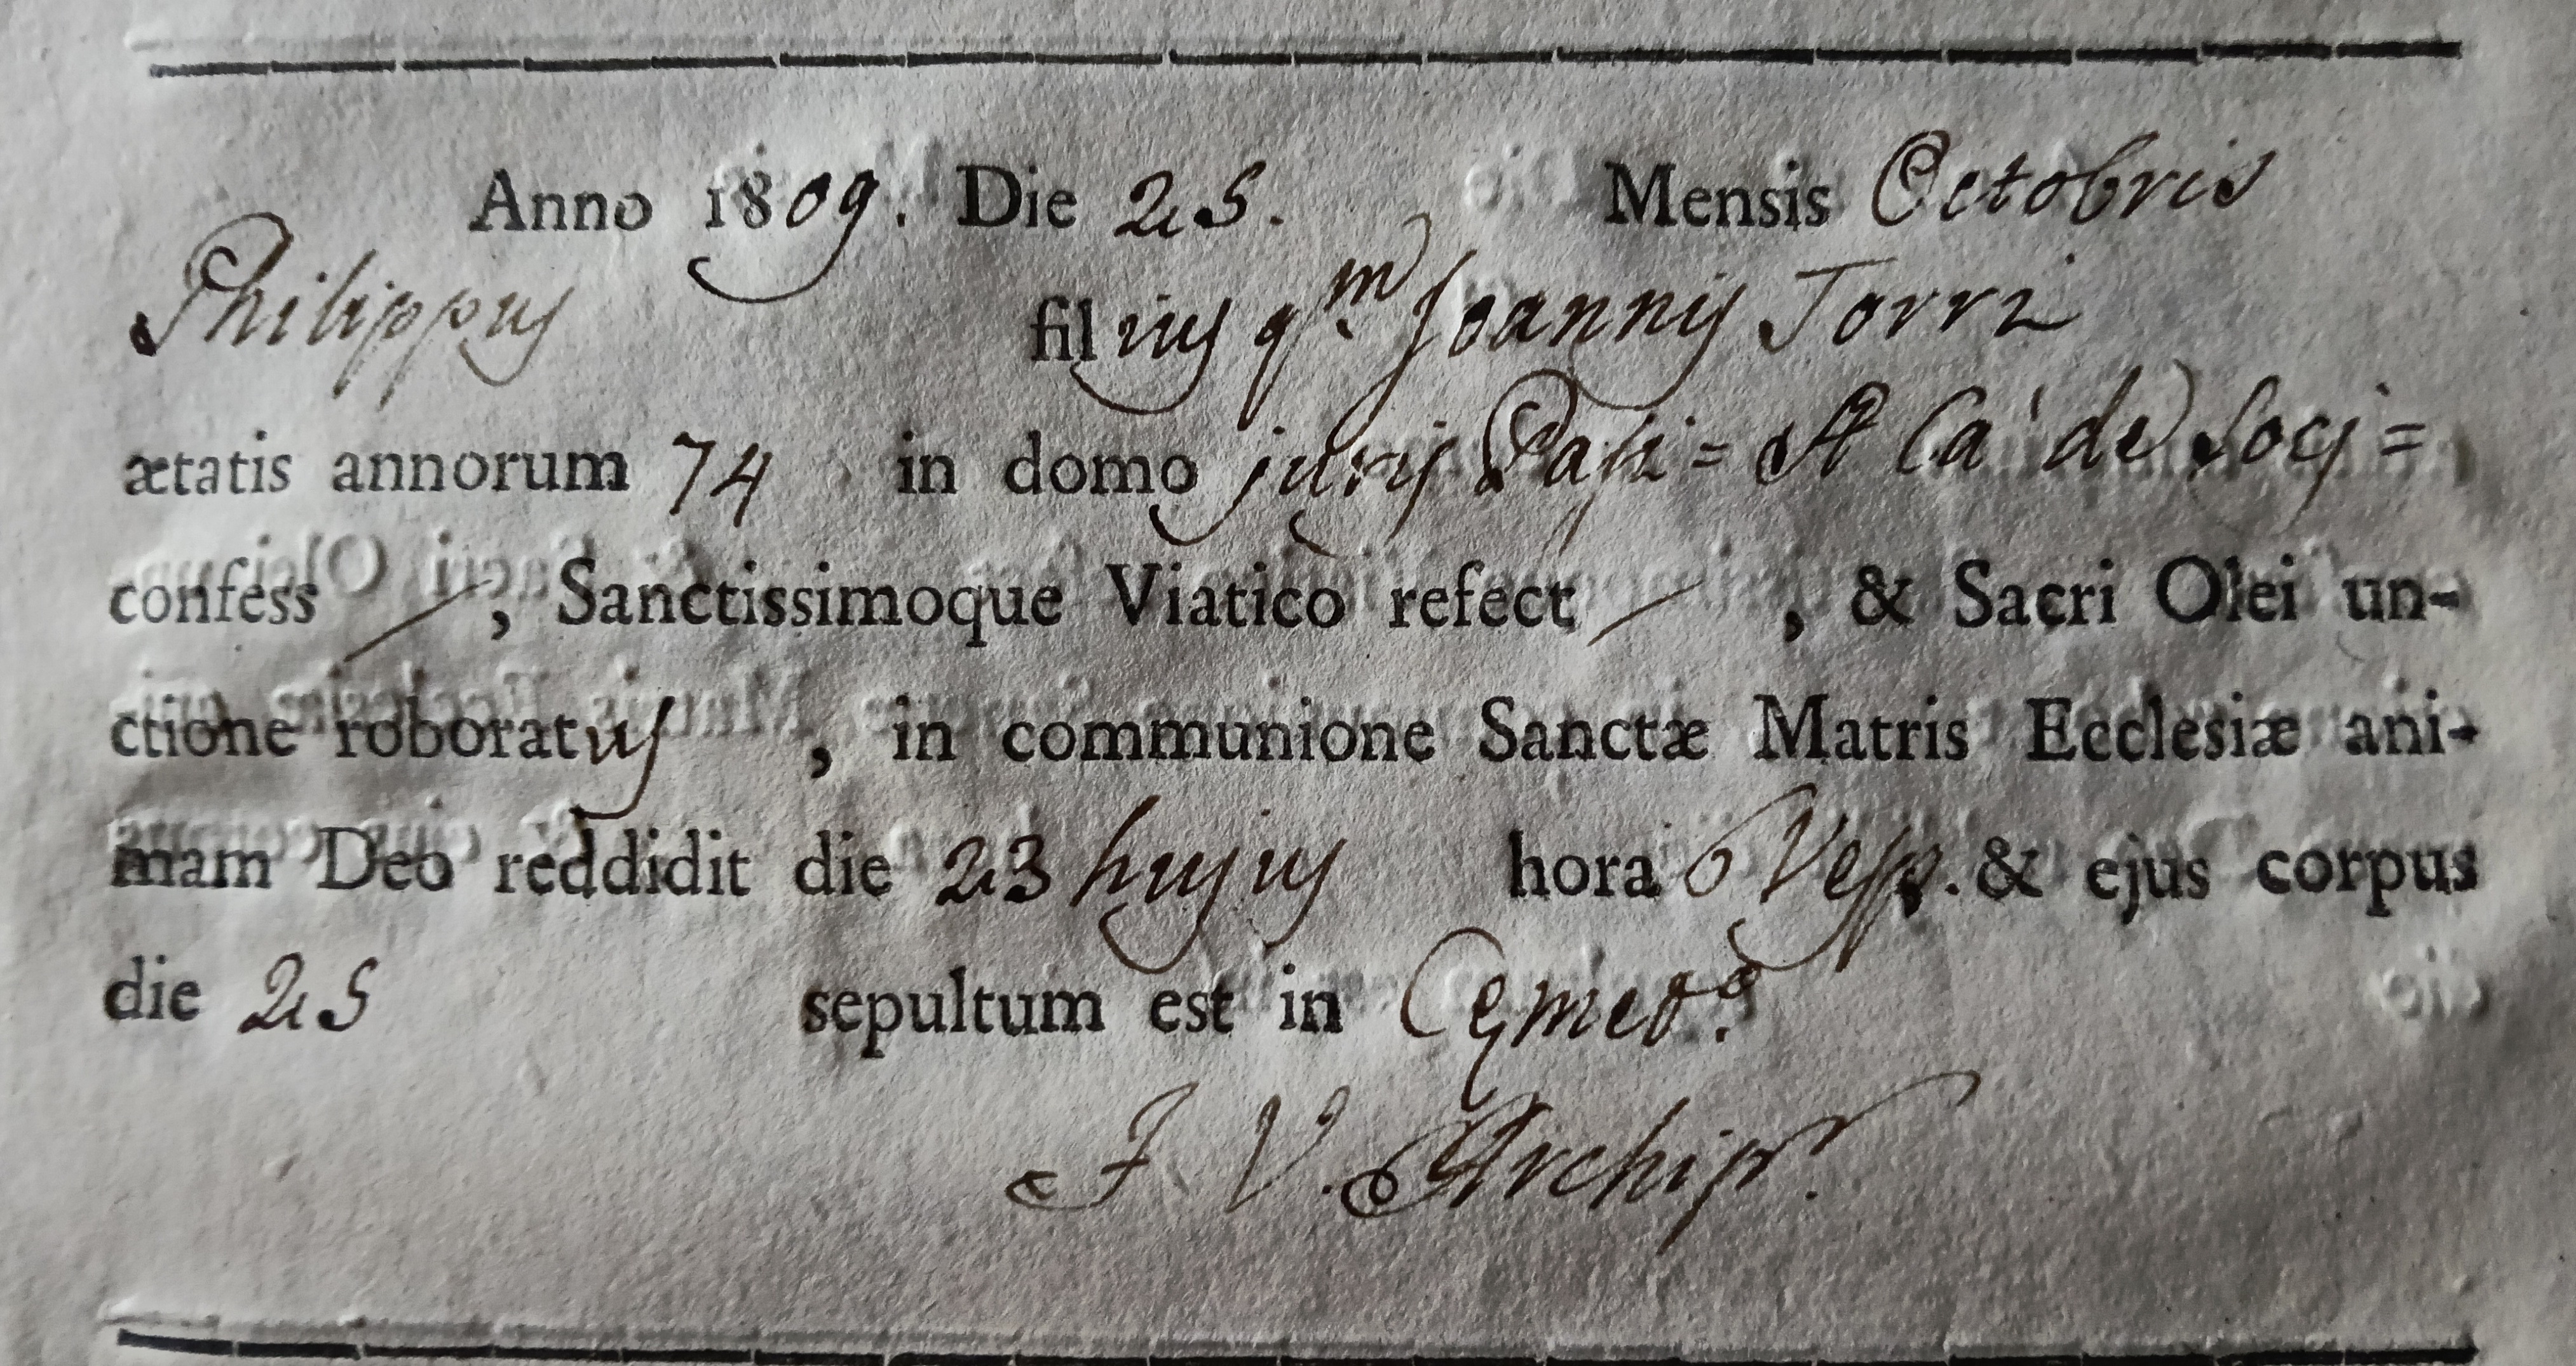 Anno 1809. Die 25. Mensis Octobris
Philippus filius qm. Joannis Torri
ætatis annorum 74 in domo juris Pasi = A Ca' de Socj =
confess , Sanctissimoque Viatico refect , & Sacri Olei un-
ctione roboratus , in communione Sanctæ Matris Ecclesiæ ani-
mam Deo reddidit die 23 hujus hora 6 Vesp. & ejus corpus
die 25 sepultum est in Cemet.o
F V. Archipr.